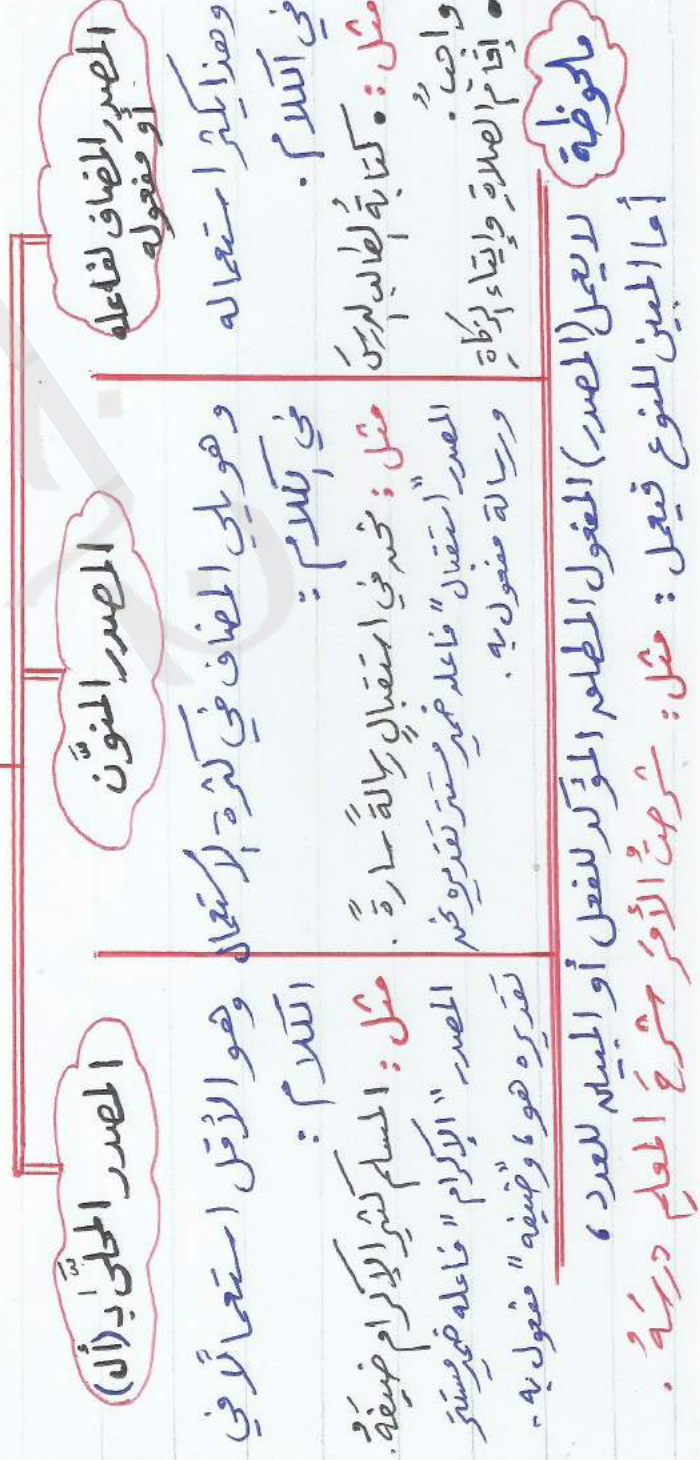 المصدر المضاف لفاعله
أو مفعوله
وهذا يكثر استعماله
في الكلام .
مثل : • كتابةُ الطالبِ الدرسَ
واجبٌ .
• إقام الصلاةِ وإيتاء الزكاةِ
المصدر المنوَّن
وهو يلي المضاف في كثرة الاستعمال
في الكلام :
مثل : نحن في استقبالٍ رسالةً سارةً .
المصدر "استقبال" فاعله ضمير مستتر تقديره نحن
ورسالة مفعول به .
المصدر المحلَّى بـ (أل)
وهو الأقل استعمالًا في
الكلام :
مثل : المسلم كثير الإكرام ضيفَهُ .
المصدر "الإكرام" فاعله ضمير مستتر
تقديره هو ، و"ضيفه" مفعول به .
ملحوظة
لا يعمل (المصدر) المفعول المطلق المؤكد للفعل أو المبين للعدد ،
أما المبين للنوع فيعمل : مثل : شرحتُ الأمرَ شرحَ المعلمِ درسَهُ .